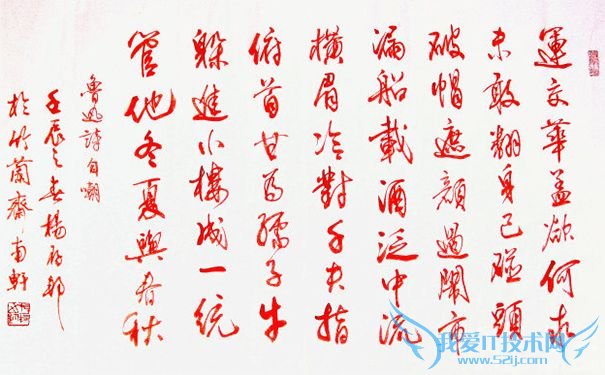 運交華蓋欲何求
未敢翻身已碰頭
破帽遮顏過鬧市
漏船載酒泛中流
橫眉冷對千夫指
俯首甘為孺子牛
躲進小樓成一統
管他冬夏與春秋
魯迅詩自嘲
壬辰之春楊
於竹蘭齋南軒
我爱IT技术网
www.52ij.com